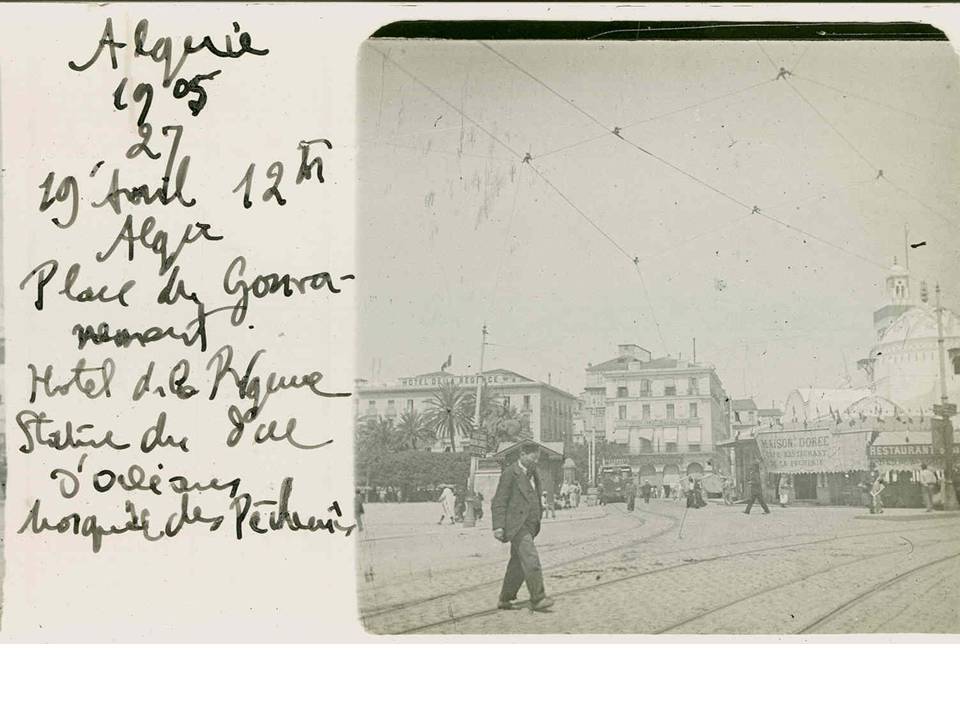 Algérie
1905
27
19 Avril 12h
Alger
Place du Gouver-
nement.
Hotel de la Régence
Statue du Duc
d'Orléans
Mosquée des Pêcheries
HOTEL DE LA REGENCE
MAISON DOREE
CAFE RESTAURANT
DE LA PECHERIE
RESTAURANT